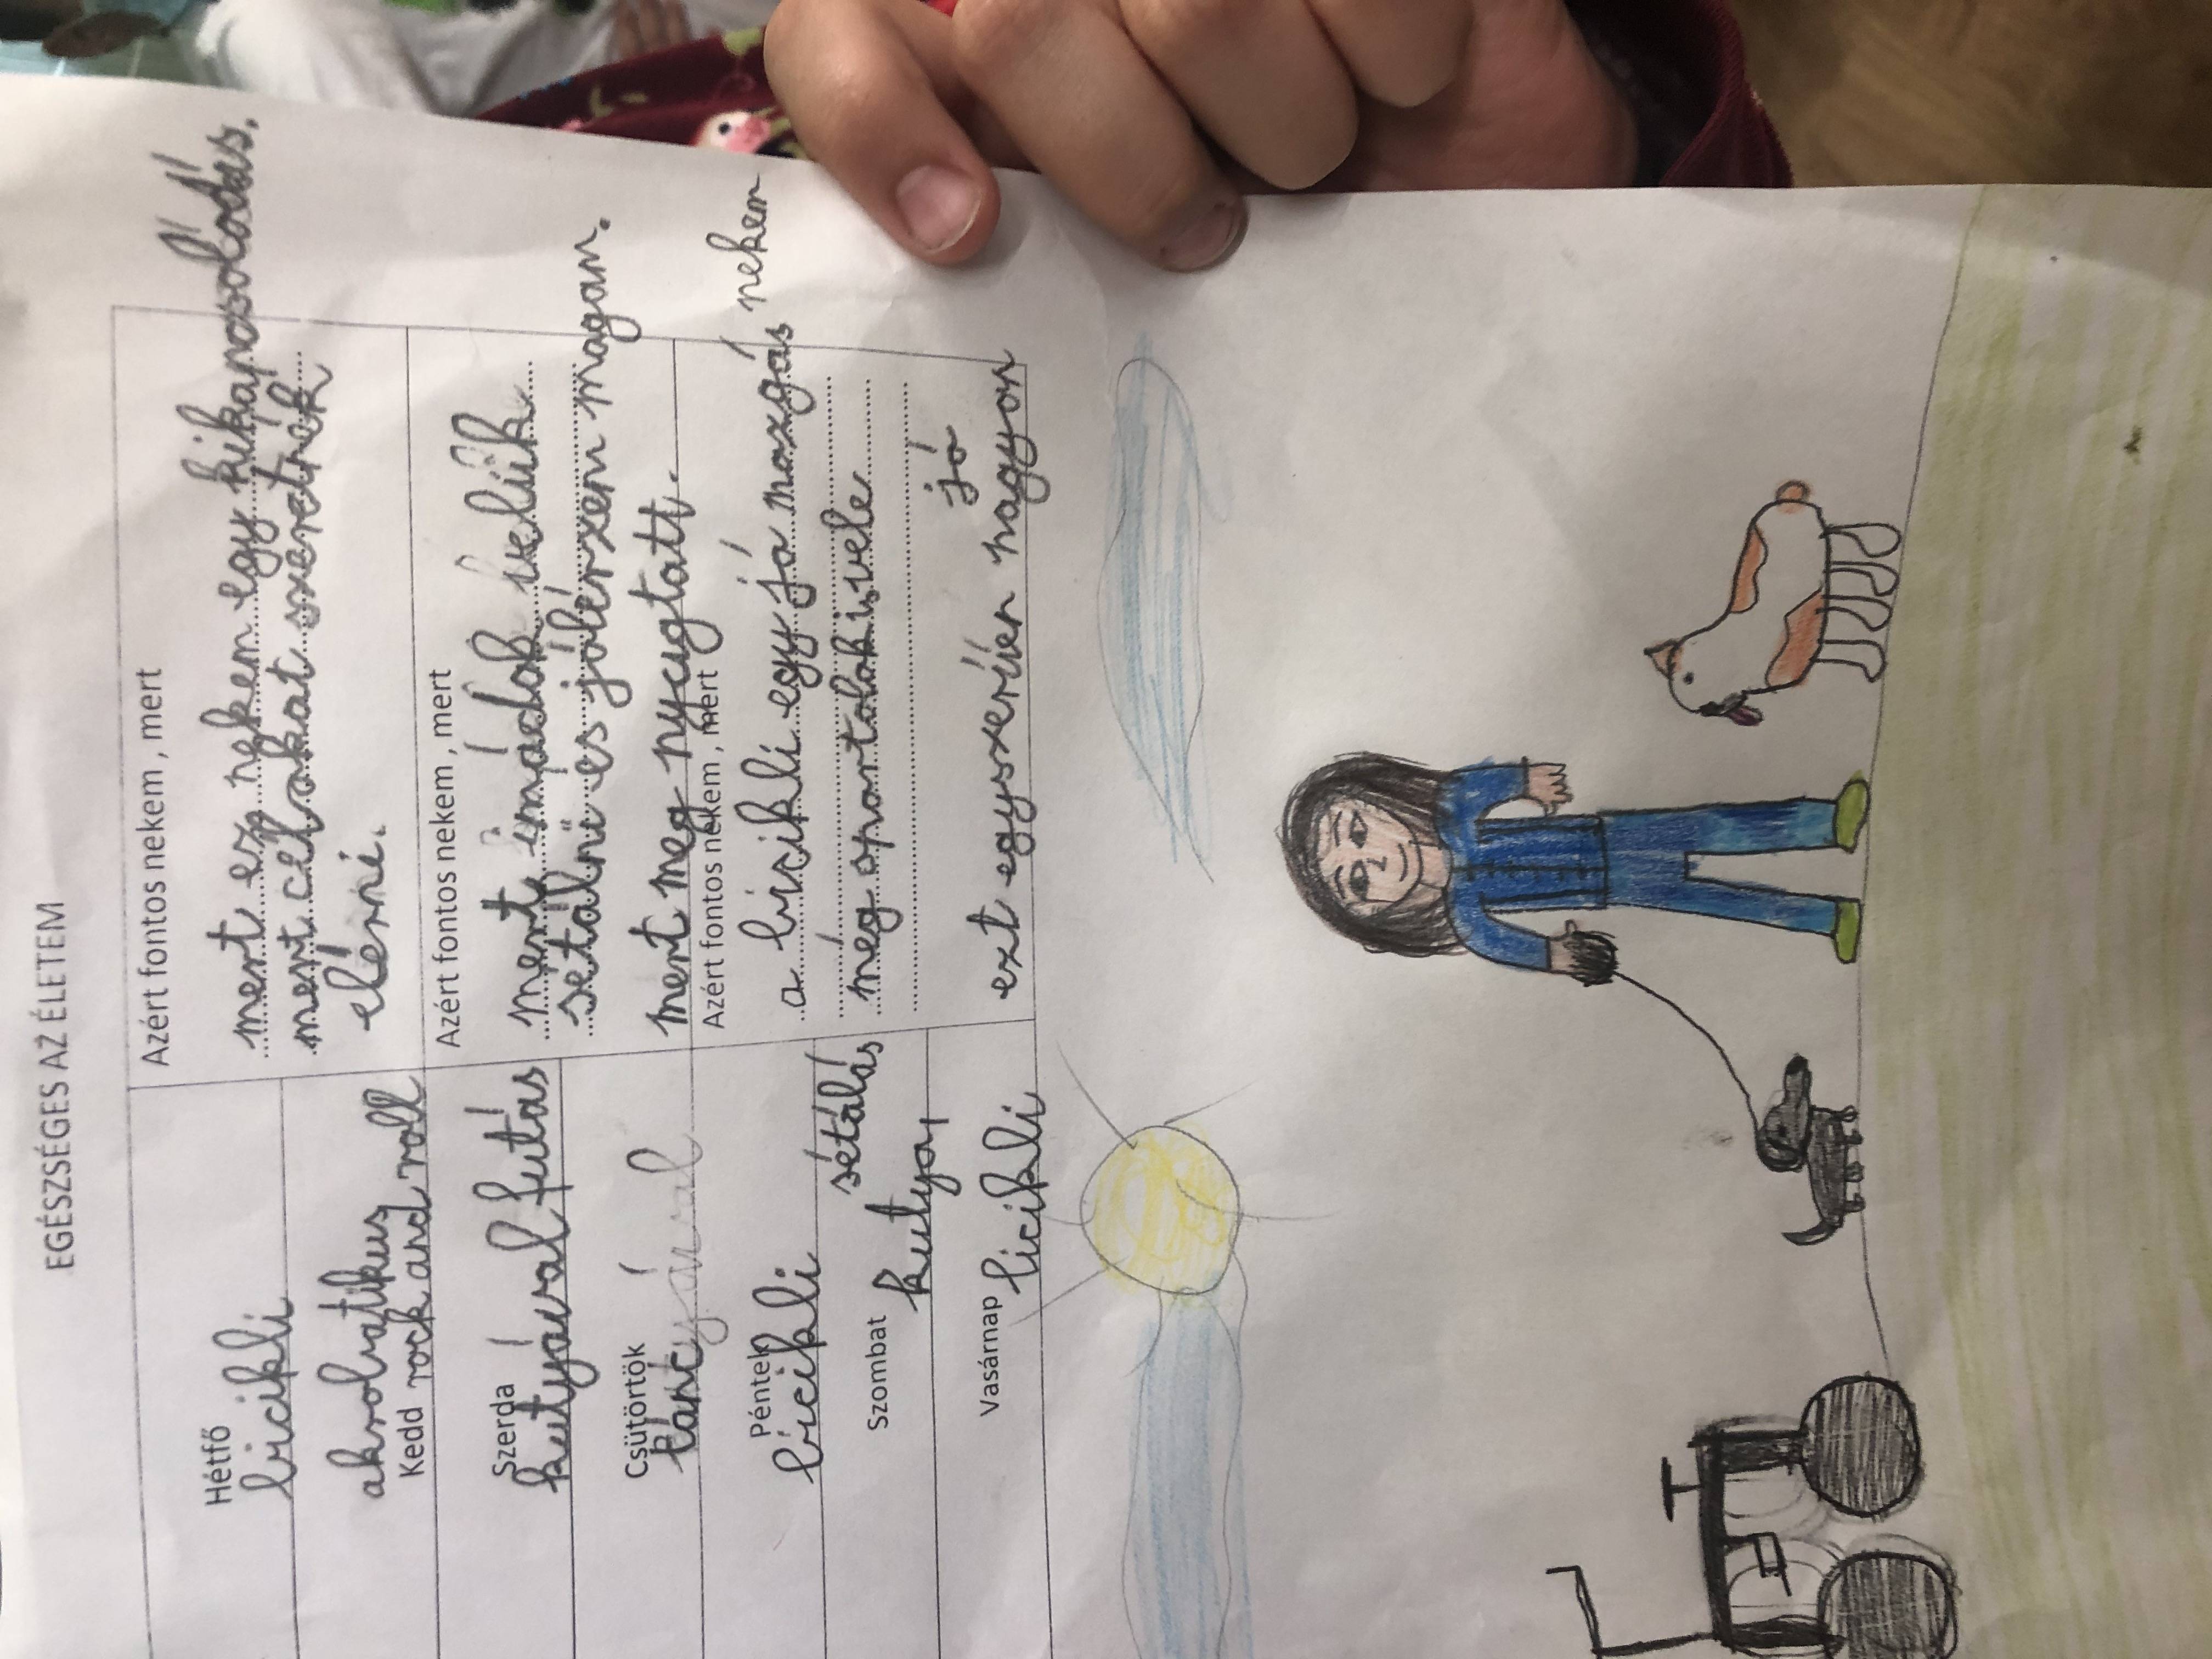 EGÉSZSÉGES AZ ÉLETEM
Hétfő
bicikli
akrobatikus
Kedd rock and roll
Szerda
kutyával futás
Csütörtök
tánc
Péntek
bicikli
Szombat
sétálás
kutya
Vasárnap bicikli
Azért fontos nekem , mert
mert ez nekem egy kikapcsolódás.
mert célokat szeretnék
elérni.
Azért fontos nekem , mert
mert imádok velük
sétálni és jólérzem magam.
mert meg nyugtatt.
Azért fontos nekem , mert
a bicikli egy jó mozgás nekem
meg sportolok is vele
jó
ezt egyszerűen nagyon